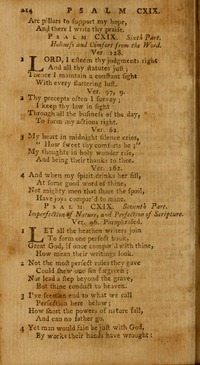 214 PSALM CXIX.
Are pillars to support my hope,
And there I write thy praise.
PSALM CXIX. Sixth Part.
Holiness and Comfort from the Word.
Ver. 128.
1 LORD, I esteem thy judgments right
And all thy statutes just;
Thence I maintain a constant fight
With every flattering lust.
Ver. 97, 9.
2 Thy precepts often I survey;
I keep thy law in sight
Through all the business of the day,
To form my actions right.
Ver. 62.
3 My heart in midnight silence cries,
"How sweet thy comforts be;"
My thoughts in holy wonder rise,
And bring their thanks to thee.
Ver. 162.
4 And when my spirit drinks her fill,
At some good word of thine,
Not mighty men that share the spoil,
Have joys compar'd to mine.
PSALM CXIX. Seventh Part.
Imperfection of Nature, and Perfection of Scripture.
Ver. 96. Paraphrased.
1 LET all the heathen writers join
To form one perfect book,
Great God, if once compar'd with thine,
How mean their writings look.
2 Not the most perfect rules they gave
Could shew one sin forgiven;
Nor lead a step beyond the grave,
But thine conduct to heaven.
3 I've seen an end to what we call
Perfection here below;
How short the powers of nature fall,
And can no farther go.
4 Yet man would fain be just with God,
By works their hands have wrought: